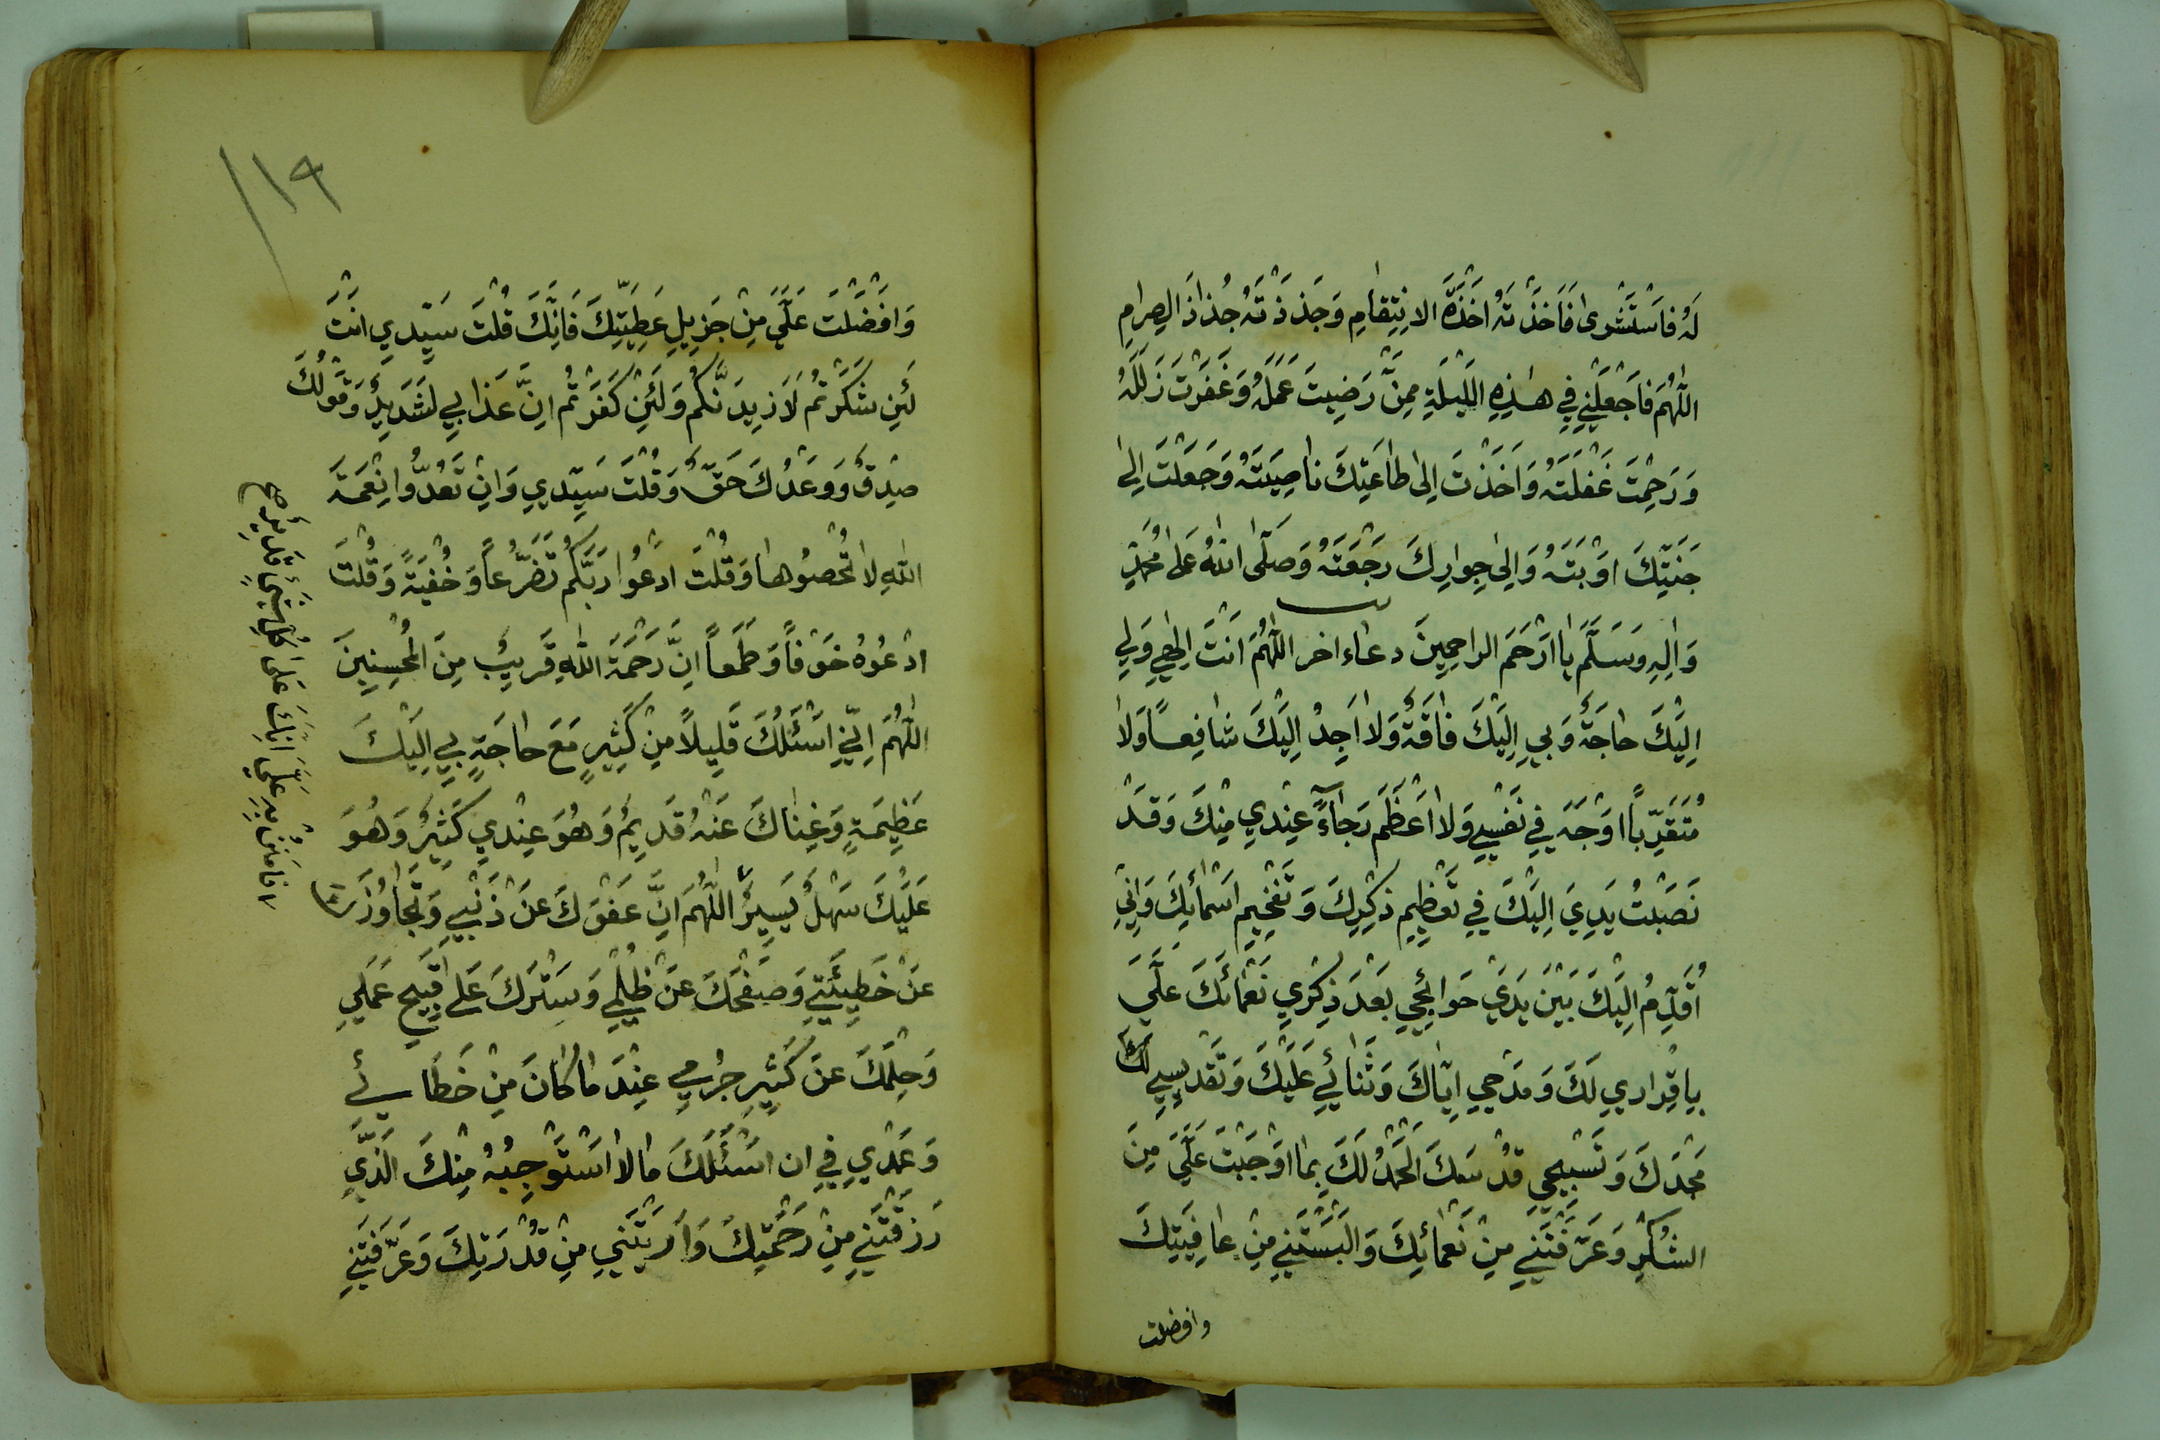 لَهُ فَاسْتَشْرىٰ فَاَخَذْتَهُ اَخْذَةَ الاِنْتِقٰامِ وَجَذَذْتَهُ جُذٰاذَ الصِرٰامِ
اللّٰهُمَّ فَاجْعَلْنِي فِي هٰذِهِ اللَّيْلَةِ مِمَّنْ رَضِيتَ عَمَلَهُ وَغَفَرْتَ زَلَلَهُ
وَرَحِمْتَ غَفْلَتَهُ وَاَخَذْتَ اِلىٰ طٰاعَتِكَ نٰاصِيَتَهُ وَجَعَلْتَ اِلىٰ
جَنَّتِكَ اَوْبَتَهُ وَاِلىٰ جِوٰارِكَ رَجْعَتَهُ وَصَلَّى اللهُ عَلىٰ مُحَمَّدٍ
وَاٰلِهِ وَسَلَّمَ يٰا اَرْحَمَ الرٰاحِمِينَ دعاء اخر اللّٰهُمَّ اَنْتَ اِلٰهِي وَلِي
اِلَيْكَ حٰاجَةٌ وَبِي اِلَيْكَ فٰاقَةٌ وَلاٰ اَجِدُ اِلَيْكَ شٰافِعًا وَلاٰ
مُتَقَرِّبًا اَوْجَهَ فِي نَفْسِي وَلاٰ اَعْظَمَ رَجٰاءً عِنْدِي مِنْكَ وَقَدْ
نَصَبْتُ يَدِيَ اِلَيْكَ فِي تَعْظِيمِ ذِكْرِكَ وَتَفْخِيمِ اَسْمٰائِكَ وَاِنِّي
اُقَدِّمُ اِلَيْكَ بَيْنَ يَدَيْ حَوٰائِجِي بَعْدَ ذِكْرِي نَعْمٰائَكَ عَلَيَّ
بِاِقْرٰارِي لَكَ وَمَدْحِي اِيّٰاكَ وَثَنٰائِي عَلَيْكَ وَتَقْدِيسِي لَكَ
مَجْدَكَ وَتَسْبِيحِي قُدْسَكَ الْحَمْدُ لَكَ بِمٰا اَوْجَبْتَ عَلَيَّ مِنَ
الشُكْرِ وَعَرَّفْتَنِي مِنْ نَعْمٰائِكَ وَاَلْبَسْتَنِي مِنْ عٰافِيَتِكَ
وافضلت
١١٩
وَاَفْضَلْتَ عَلَيَّ مِنْ جَزِيلِ عَطِيَّتِكَ فَاِنَّكَ قُلْتَ سَيِّدِي اَنْتَ
لَئِنْ شَكَرْتُمْ لَاَزِيدَنَّكُمْ وَلَئِنْ كَفَرْتُمْ اِنَّ عَذٰابِي لَشَدِيدٌ وَقَوْلُكَ
صِدْقٌ وَوَعْدُكَ حَقٌّ وَقُلْتَ سَيِّدِي وَاِنْ تَعُدُّوا نِعْمَةَ
اللهِ لاٰ تُحْصُوهٰا وَقُلْتَ ادْعُوا رَبَّكُمْ تَضَرُّعاً وَخُفْيَةً وَقُلْتَ
ادْعُوهُ خَوْفاً وَطَمَعاً اِنَّ رَحْمَةَ اللهِ قَرِيبٌ مِنَ الْمُحْسِنِينَ
اللّٰهُمَّ اِنِّي اَسْئَلُكَ قَلِيلاً مِنْ كَثِيرٍ مَعَ حٰاجَةٍ بِي اِلَيْكَ
عَظِيمَةٍ وَغِنٰاكَ عَنْهُ قَدِيمٌ وَهُوَ عِنْدِي كَثِيرٌ وَهُوَ
عَلَيْكَ سَهْلٌ يَسِيرٌ اللّٰهُمَّ اِنَّ عَفْوَكَ عَنْ ذَنْبِي وَتَجٰاوُزَكَ
عَنْ خَطِيئَتِي وَصَفْحَكَ عَنْ ظُلْمِي وَسَتْرَكَ عَلىٰ قَبِيحِ عَمَلِي
وَحِلْمَكَ عَنْ كَثِيرِ جُرْمِي عِنْدَ مٰا كٰانَ مِنْ خَطَائِي
وَعَمْدِي فِي ان اَسْئَلَكَ مٰا لاٰ اَسْتَوْجِبُهُ مِنْكَ الَّذِي
رَزَقْتَنِي مِنْ رَحْمَتِكَ وَاَرَيْتَنِي مِنْ قُدْرَتِكَ وَعَرَّفْتَنِي
فَامْنُنْ بِهِ عَلَيَّ اِنَّكَ عَلىٰ كُلِّ شَيْءٍ قَدِيرٌ صح